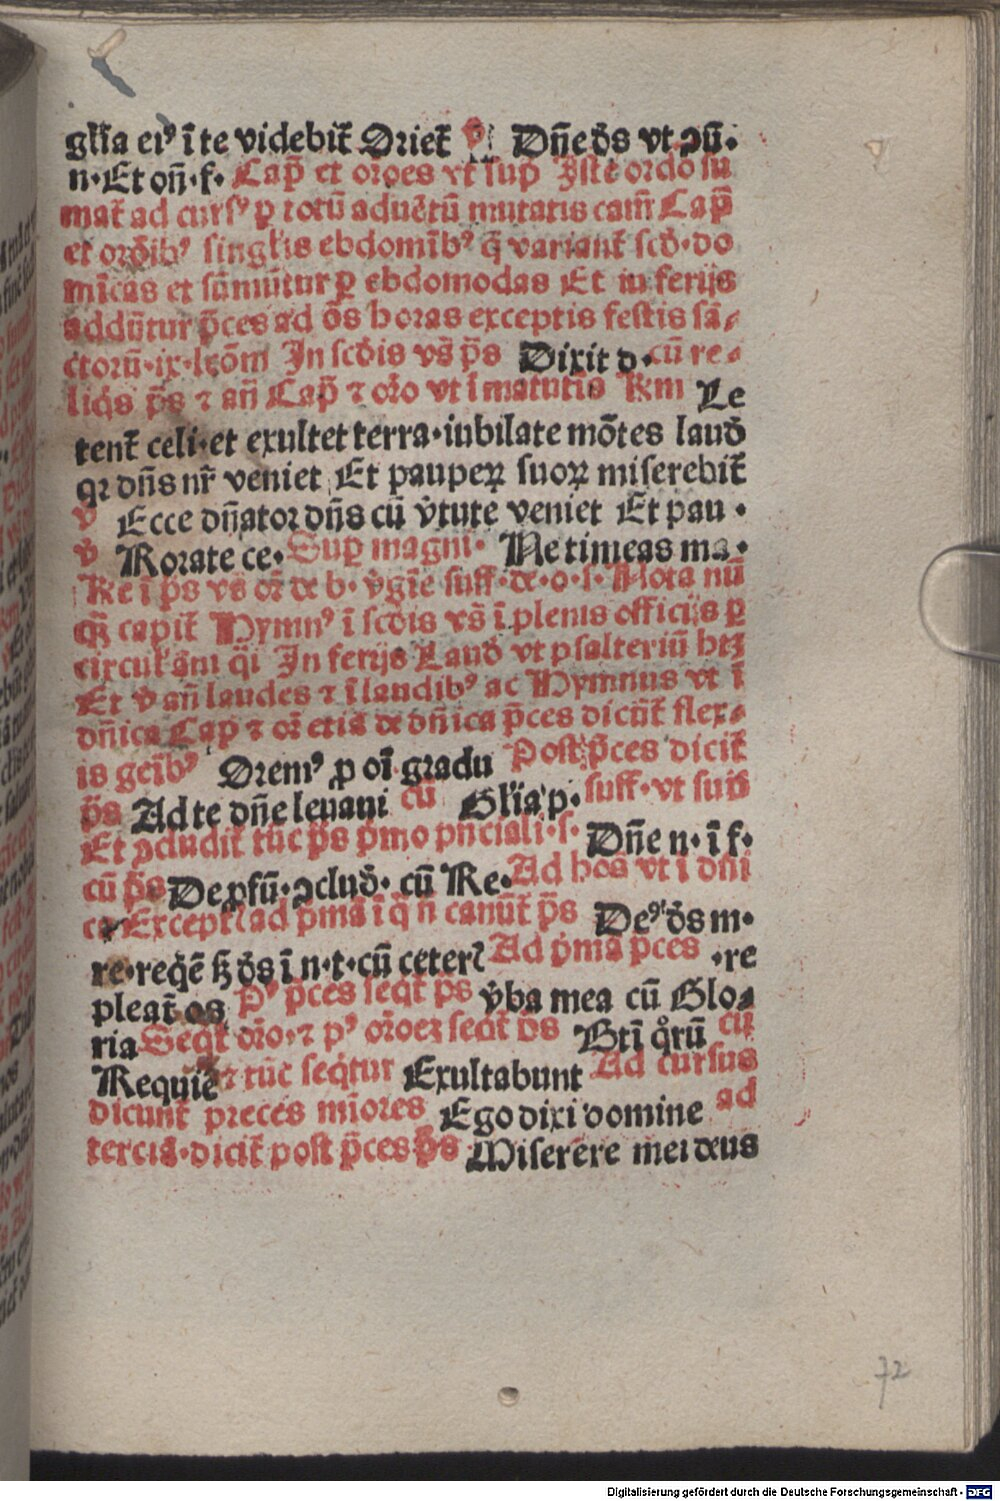 gl̄ia eiꝰ ī te videbit̄ Oriet̄ ℣ Dn̄e d̄s vt ↄū·
n·Et on̄·f· Cap̄ et oroes vt sup Iste ordo su
mat̄ ad cursꝰ ꝑ totū aduētū mutatis cam̄ Cap̄
et ordībꝰ singl̄is ebdomībꝰ q̄ variant̄ scd̄·do
mīcas et sūmūtur ꝑ ebdomodas Et in ferijs
addūtur p̄ces ad ōs horas exceptis festis sā⸗
ctorū·ix·lcōm̄ In scd̄is vs̄ p̄s Dixit d·cū re⸗
liq̄s p̄s ⁊ an̄ Cap̄ ⁊ oro vt ī matutis Rm Le
tent̄ celi·et exultet terra·iubilate mōtes laud̄
qꝛ dn̄s nr̄ veniet Et pauperꝝ suorꝝ miserebit̄
v̄ Ecce dn̄ator dn̄s cū v̄tute veniet Et pau·
v̄ Rorate ce·Sup magni· Ne timeas ma·
Re ī p̄s vs or̄ de b· v̄gīe suff·de·o·s· Nota nū
qꝫ capit̄ Hymnꝰ ī scd̄is vs̄ ī plenis officijs ꝑ
circul̄ān̄i q̄i In ferijs Laud̄ vt psalteriū hꝫ
Et v̄ an̄ laudes ⁊ ī laudibꝰ ac Hymnus vt ī
dn̄ica Cap̄ ⁊ or̄ etiā de dn̄ica p̄ces dicūt̄ flex⸗
is geībꝰ Oremꝰ ꝓ oī gradu Post p̄ces dicit̄
p̄s Ad te dn̄e leuaui cū Gl̄ia p· suff·vt sup̄
Et ↄcludit̄ tūc p̄s p̄mo pn̄ciali·s· Dn̄e n·ī f·
cū p̄s De ꝓfū·ↄclud̄· cū Re· Ad hos vt ī dn̄i
ca Except̄ ad p̄mā ī q̄ n canūt̄ p̄s Deꝰ d̄s m·
re·req̄ē d̄s ī n·t·cū ceterꝭ Ad p̄mā p̄ces ·re
pleat̄ os Pꝰ p̄ces seqt̄ p̄s v̄ba mea cū Glo⸗
ria Seqt̄ oro·⁊ pꝰ oroeꝫ seqt̄ p̄s Btī qͦrū cū
Requiē ⁊ tūc seq̄tur Exultabunt Ad cursus
dicunt̄ preces mīores Ego dixi domine ad
terciā·dicit̄ post p̄ces p̄s Miserere mei deus
72
Digitalisierung gefördert durch die Deutsche Forschungsgemeinschaft - DFG